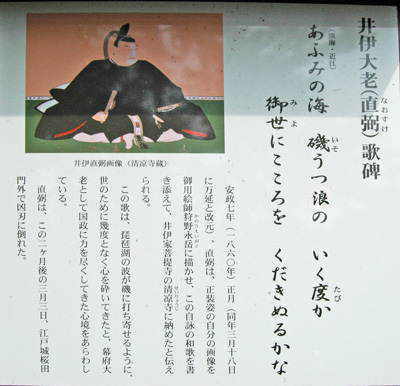 井伊大老(直弼)歌碑
なおすけ
(淡海・近江)
あふみの海 磯うつ浪の いく度か
いそ たび
御世にこころを くだきぬるかな
みよ
井伊直弼画像(清凉寺蔵)
安政七年(一八六〇年)正月(同年三月十八日
に万延と改元)、直弼は、正装姿の自分の画像を
御用絵師狩野永岳に描かせ、この自詠の和歌を書
き添えて、井伊家菩提寺の清凉寺に納めたと伝え
られる。
この歌は、琵琶湖の波が磯に打ち寄せるように、
世のために幾度となく心を砕いてきたと、幕府大
老として国政に力を尽くしてきた心境をあらわし
ている。
直弼は、この二ヶ月後の三月三日、江戸城桜田
門外で凶刃に倒れた。